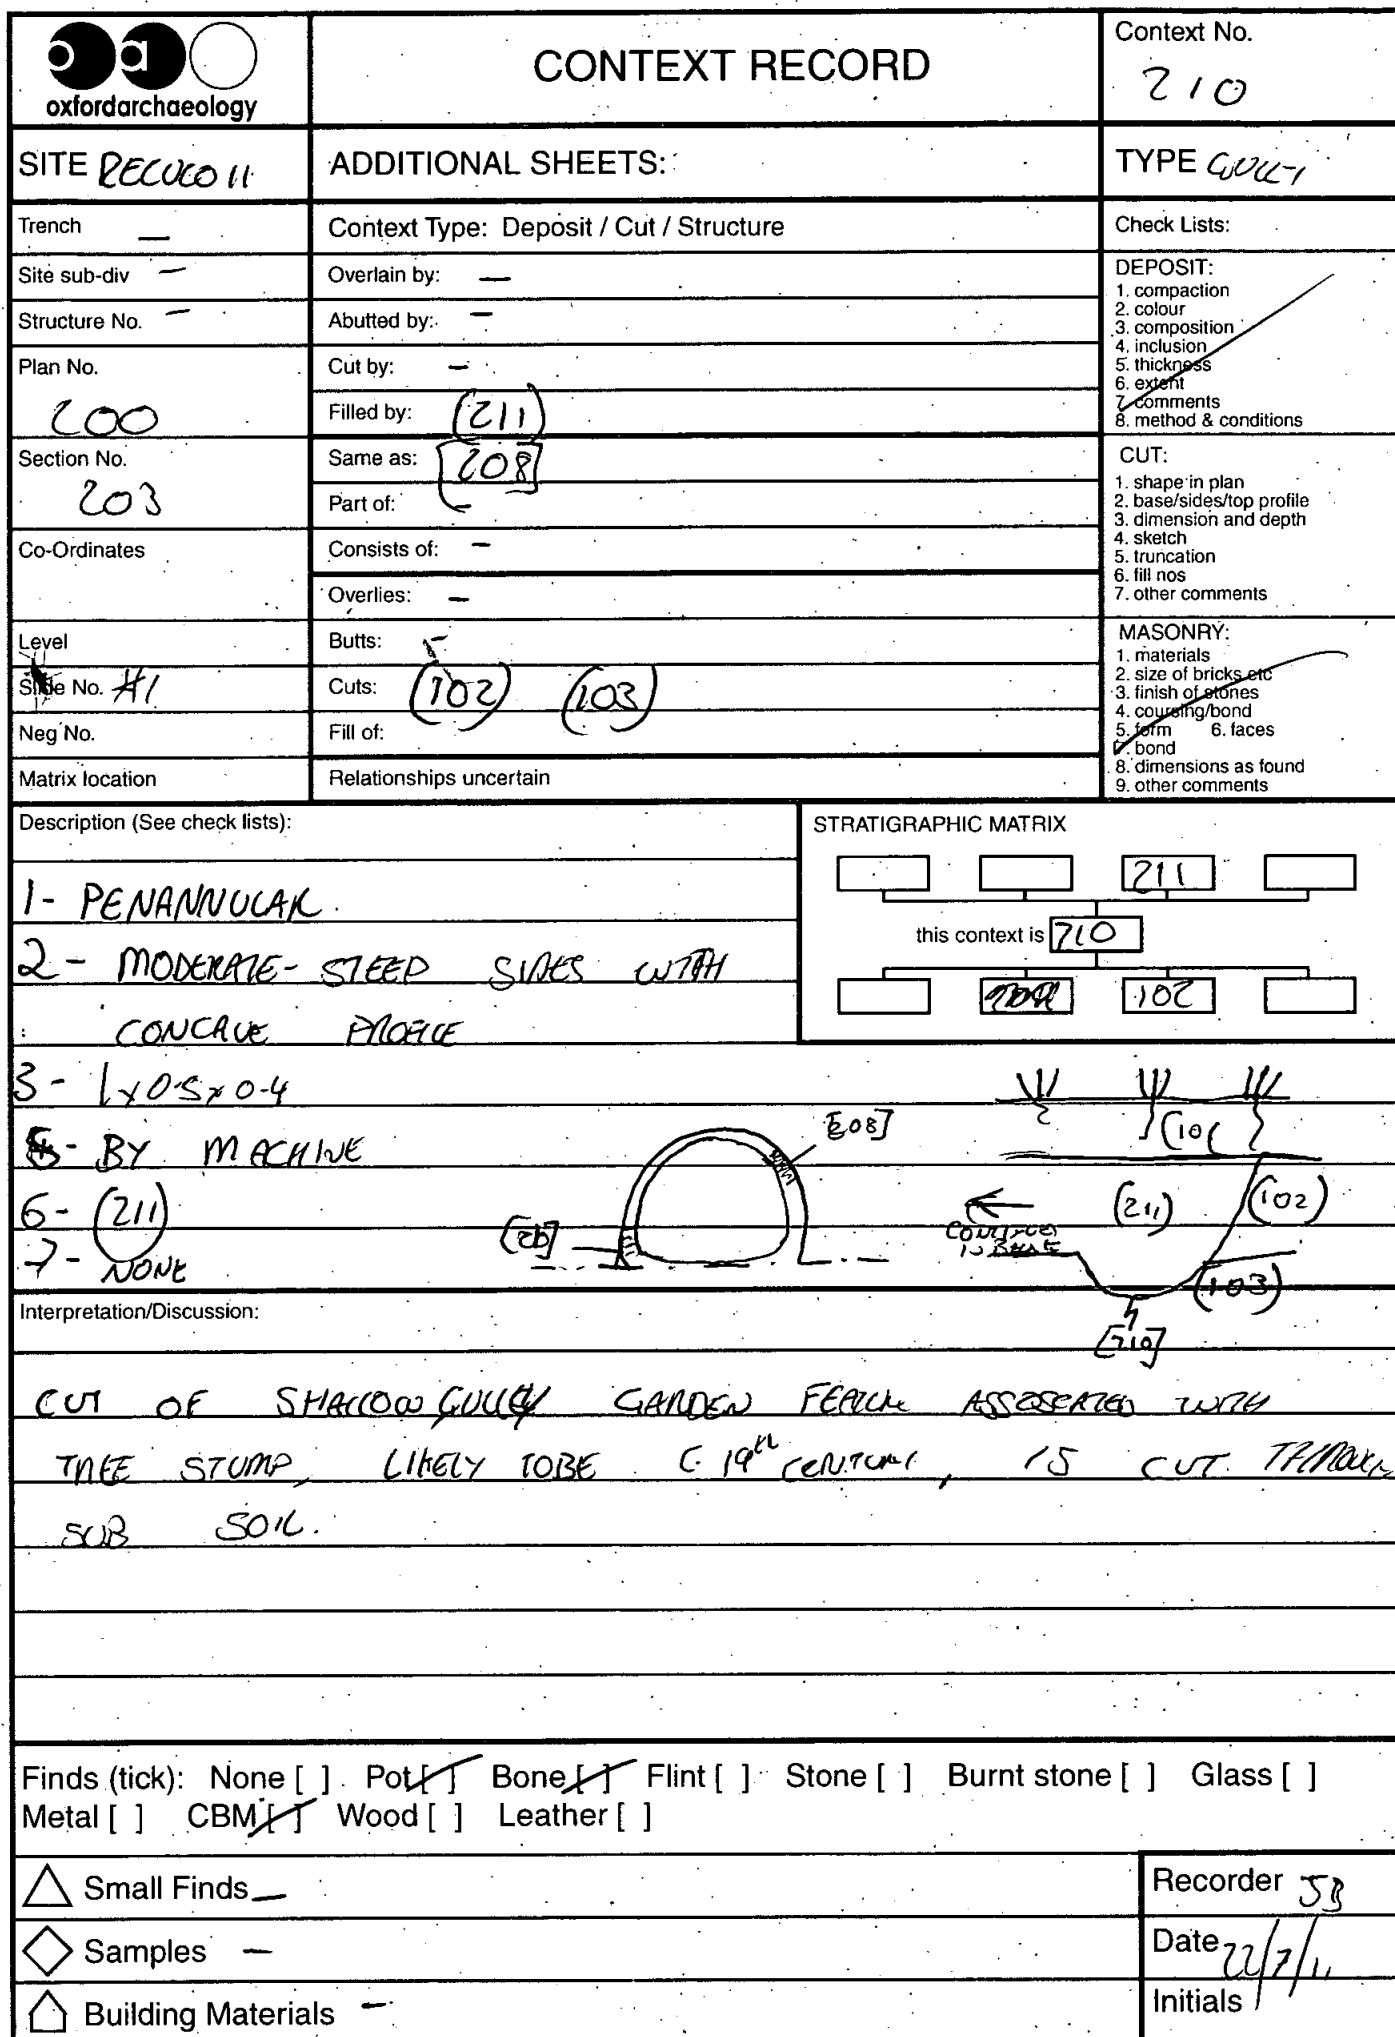 oao
oxfordarchaeology
CONTEXT RECORD
Context No.
210
SITE RECUCO 11
ADDITIONAL SHEETS:
TYPE GULLY
Trench —
Context Type: Deposit / Cut / Structure
Check Lists:
Site sub-div —
Overlain by: —
Structure No. —
Abutted by: —
Plan No.
200
Cut by: —
Filled by: (211)
Section No.
203
Same as: [208]
Part of: —
Co-Ordinates
Consists of: —
Overlies: —
Level
Butts: —
Slide No. #1
Cuts: (102) (103)
Neg No.
Fill of:
Matrix location
Relationships uncertain
DEPOSIT:
1. compaction
2. colour
3. composition
4. inclusion
5. thickness
6. extent
7. comments
8. method & conditions
CUT:
1. shape in plan
2. base/sides/top profile
3. dimension and depth
4. sketch
5. truncation
6. fill nos
7. other comments
MASONRY:
1. materials
2. size of bricks etc
3. finish of stones
4. coursing/bond
5. form 6. faces
7. bond
8. dimensions as found
9. other comments
Description (See check lists):
1- PENANNULAR.
2- MODERATE-STEEP SIDES WITH
CONCAVE PROFILE
3- 1x0.5x0.4
5- BY MACHINE
6- (211)
7- NONE
STRATIGRAPHIC MATRIX
211
this context is 210
102
[208]
(101
(211)
(102)
(103)
[210]
CONTINUES
IN
Interpretation/Discussion:
CUT OF SHALLOW GULLEY GARDEN FEATURE ASSOSIATED WITH
TREE STUMP, LIKELY TO BE C.19th CENTURY, IS CUT THROUGH
SUB SOIL.
Finds (tick): None [ ] Pot [/] Bone [/] Flint [ ] Stone [ ] Burnt stone [ ] Glass [ ]
Metal [ ] CBM [/] Wood [ ] Leather [ ]
Small Finds —
Samples —
Building Materials —
Recorder JB
Date 22/7/11
Initials